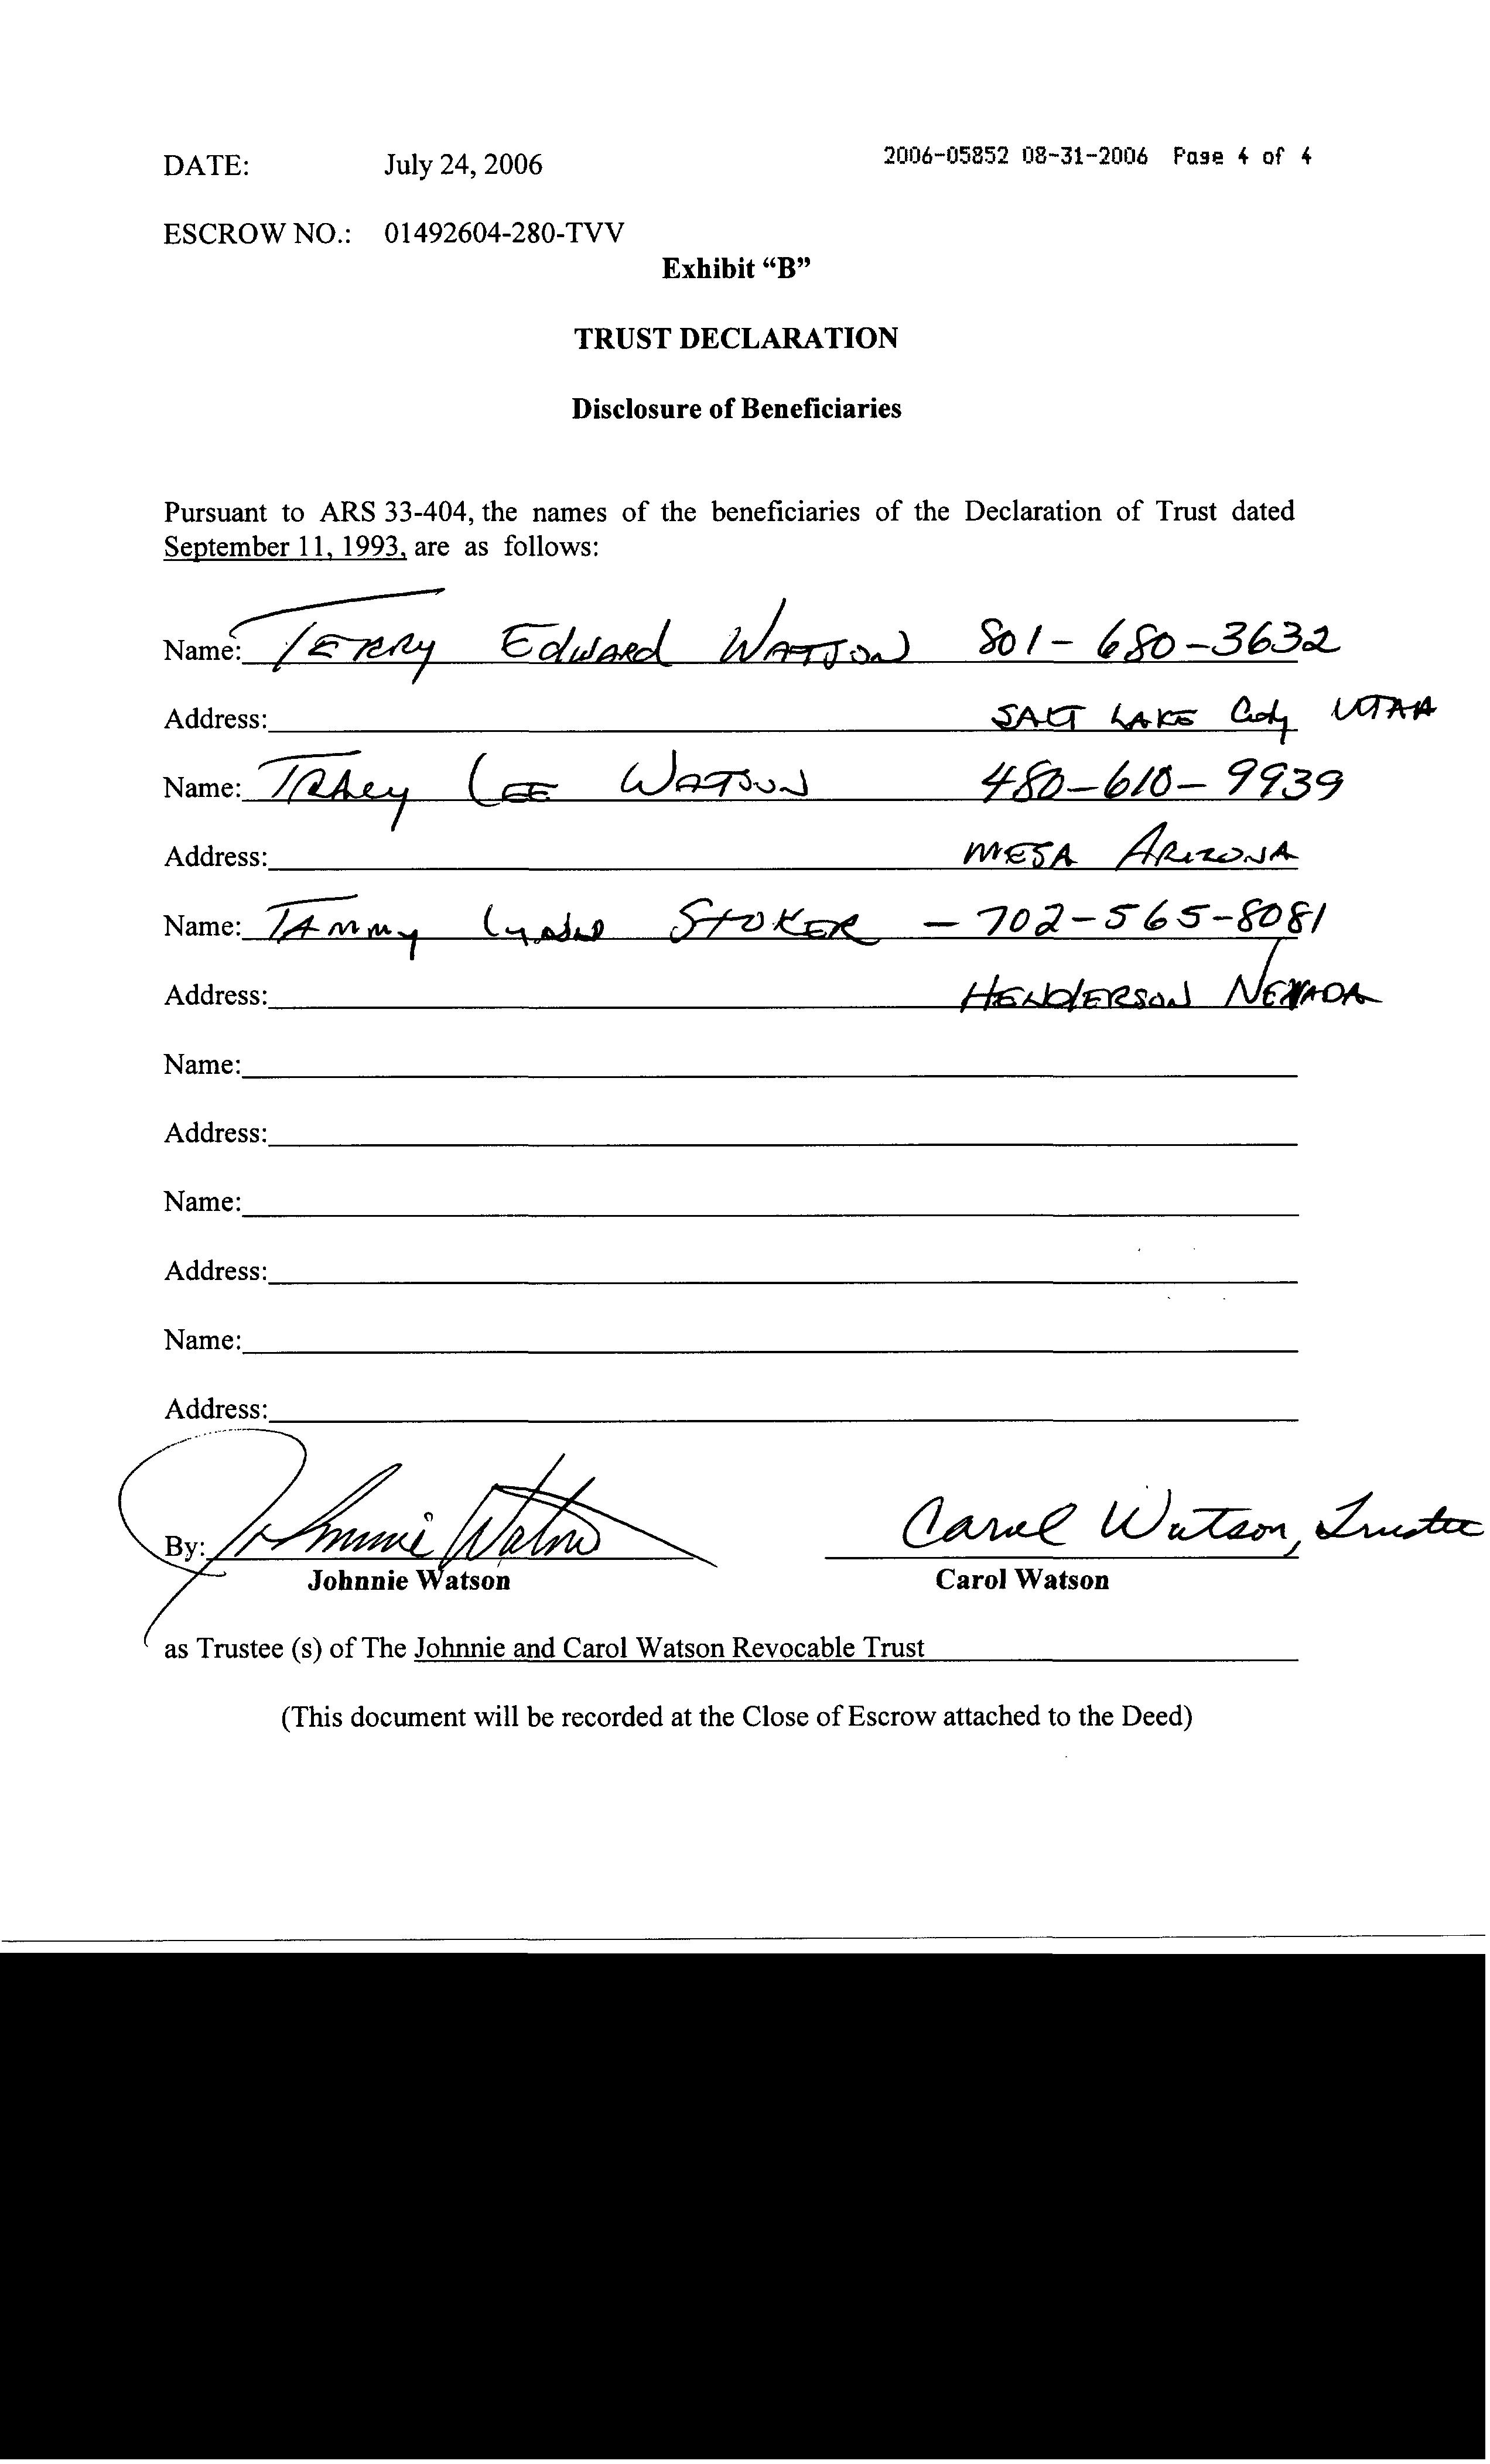 DATE: July 24, 2006 2006-05852 08-31-2006 Page 4 of 4
ESCROW NO.: 01492604-280-TVV
Exhibit “B”
TRUST DECLARATION
Disclosure of Beneficiaries
Pursuant to ARS 33-404, the names of the beneficiaries of the Declaration of Trust dated
September 11, 1993, are as follows:
Name: TERRY Edward WATSON 801-680-3632
Address: SALT LAKE City UTAH
Name: TRACY LEE WATSON 480-610-9939
Address: MESA ARIZONA
Name: TAMMY STOKER - 702-565-8081
Address: HENDERSON NEVADA
Name:
Address:
Name:
Address:
Name:
Address:
By: Johnnie Watson Carol Watson, Trustee
Johnnie Watson Carol Watson
as Trustee (s) of The Johnnie and Carol Watson Revocable Trust
(This document will be recorded at the Close of Escrow attached to the Deed)